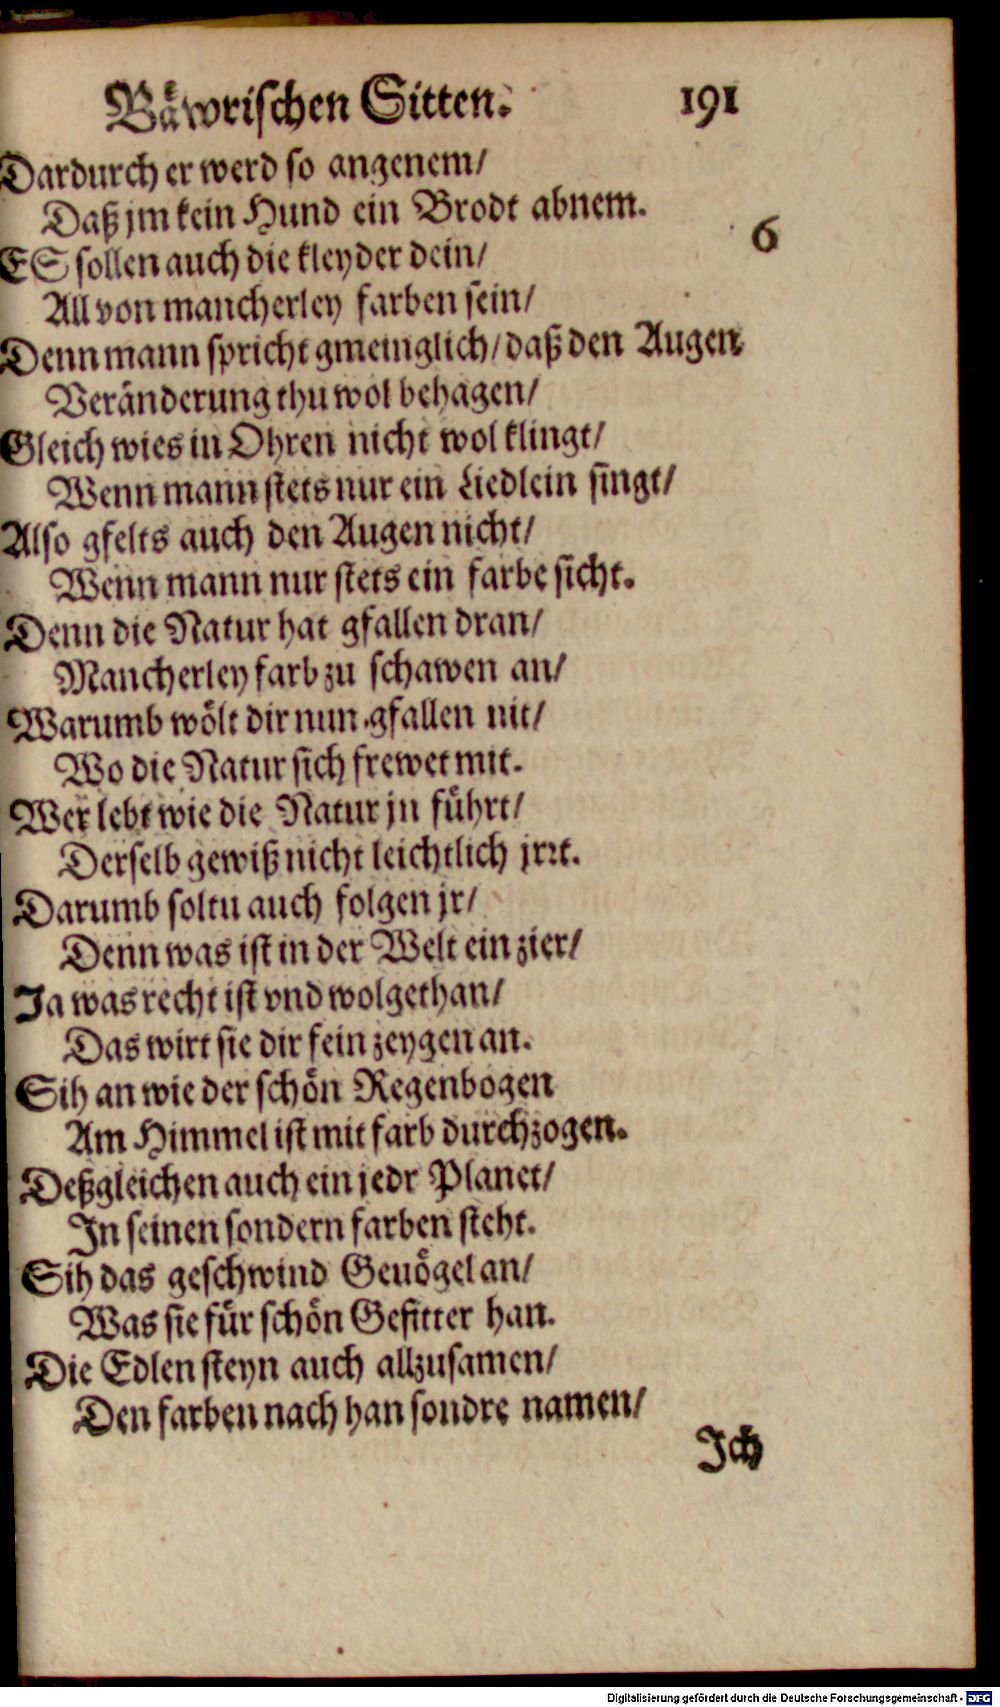 Bäwrischen Sitten. 191
Dardurch er werd so angenem/
Daß jm kein Hund ein Brodt abnem.
6
ES sollen auch die kleyder dein/
All von mancherley farben sein/
Denn mann spricht gmeinglich/ daß den Augen
Veränderung thu wol behagen/
Gleich wies in Ohren nicht wol klingt/
Wenn mann stets nur ein Liedlein singt/
Also gfelts auch den Augen nicht/
Wenn mann nur stets ein farbe sicht.
Denn die Natur hat gfallen dran/
Mancherley farb zu schawen an/
Warumb wölt dir nun gfallen nit/
Wo die Natur sich frewet mit.
Wer lebt wie die Natur jn führt/
Derselb gewiß nicht leichtlich jrrt.
Darumb soltu auch folgen jr/
Denn was ist in der Welt ein zier/
Ja was recht ist vnd wolgethan/
Das wirt sie dir fein zeygen an.
Sih an wie der schön Regenbogen
Am Himmel ist mit farb durchzogen.
Deßgleichen auch ein jedr Planet/
In seinen sondern farben steht.
Sih das geschwind Gevögel an/
Was sie für schön Gefitter han.
Die Edlen steyn auch allzusamen/
Den farben nach han sondre namen/
Ich
Digitalisierung gefördert durch die Deutsche Forschungsgemeinschaft - DFG